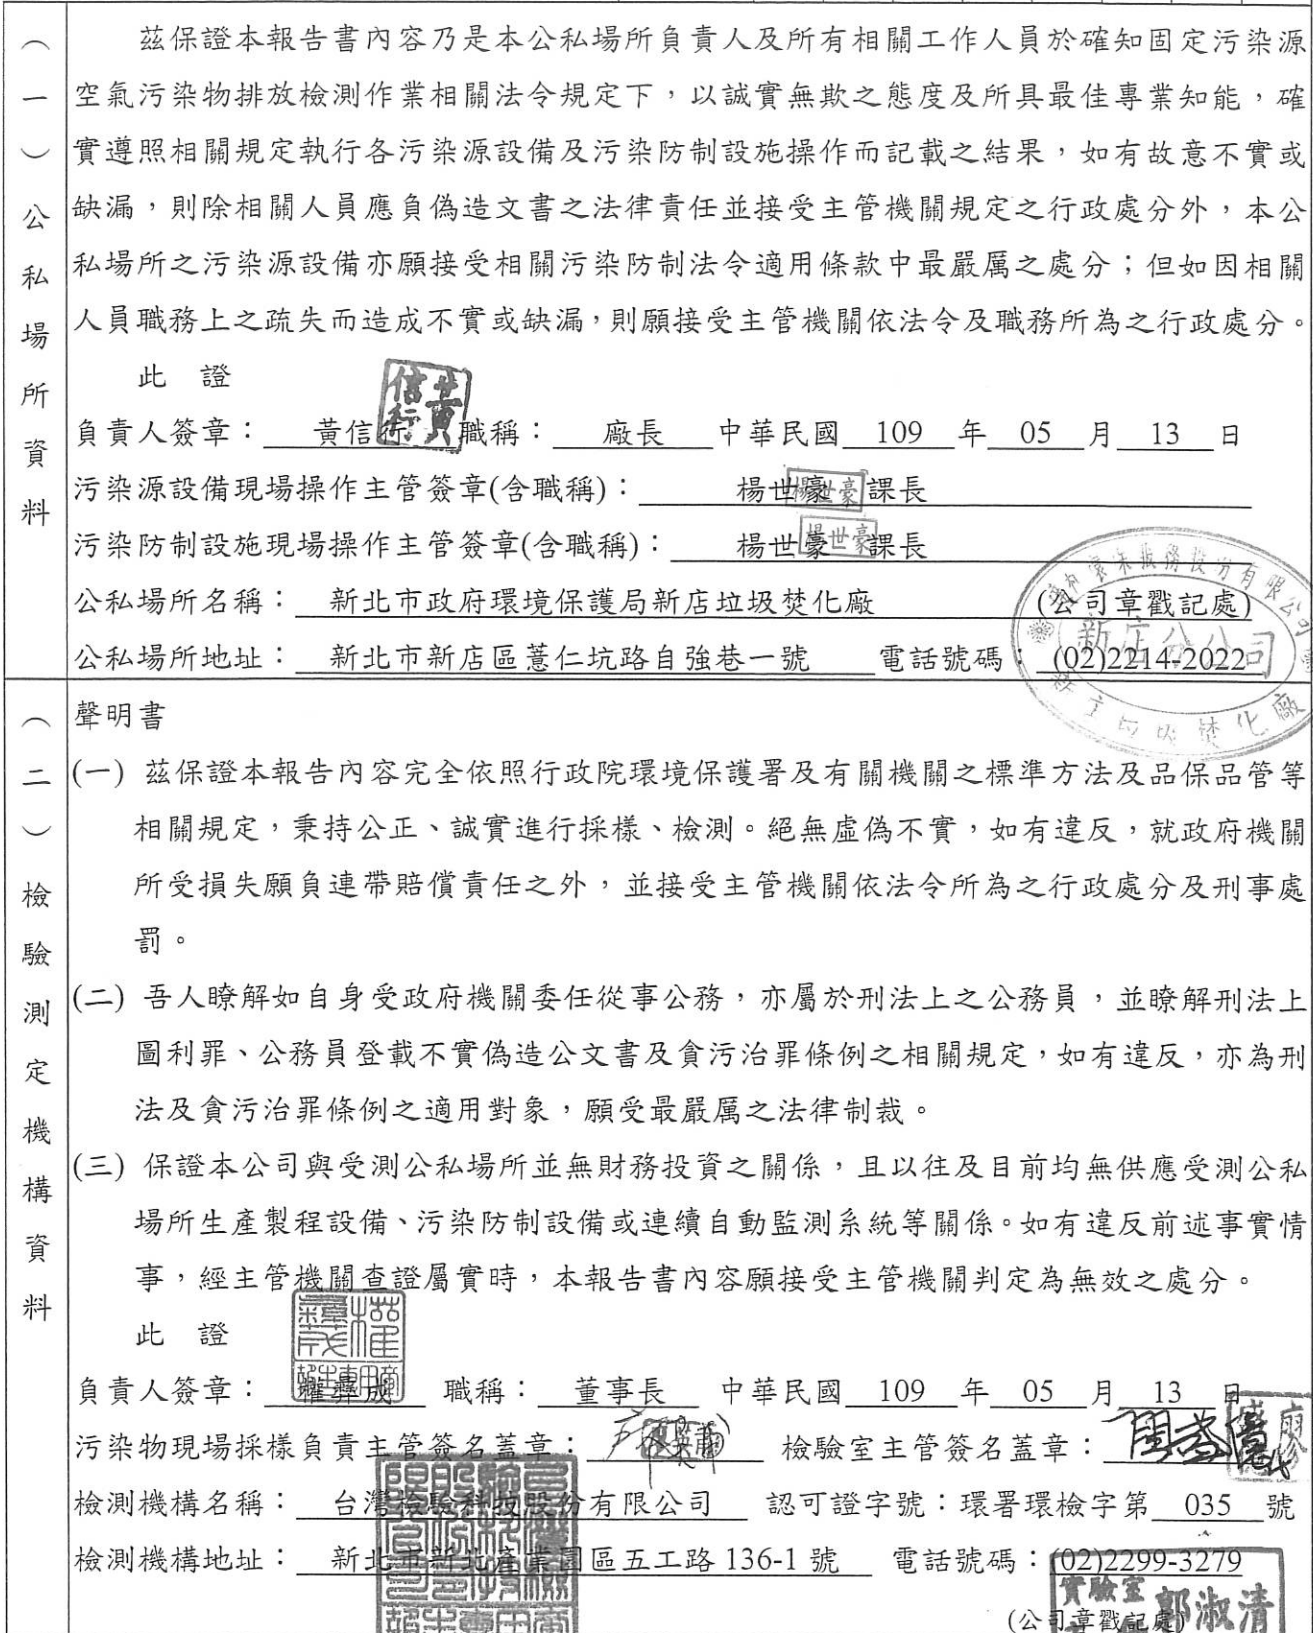 (一)公私場所資料
茲保證本報告書內容乃是本公私場所負責人及所有相關工作人員於確知固定污染源
空氣污染物排放檢測作業相關法令規定下，以誠實無欺之態度及所具最佳專業知能，確
實遵照相關規定執行各污染源設備及污染防制設施操作而記載之結果，如有故意不實或
缺漏，則除相關人員應負偽造文書之法律責任並接受主管機關規定之行政處分外，本公
私場所之污染源設備亦願接受相關污染防制法令適用條款中最嚴厲之處分；但如因相關
人員職務上之疏失而造成不實或缺漏，則願接受主管機關依法令及職務所為之行政處分。
此 證
黃信行
負責人簽章： 黃信行 職稱： 廠長 中華民國 109 年 05 月 13 日
污染源設備現場操作主管簽章(含職稱)： 楊世豪 課長
楊世豪
污染防制設施現場操作主管簽章(含職稱)： 楊世豪 課長
楊世豪
公私場所名稱： 新北市政府環境保護局新店垃圾焚化廠 (公司章戳記處)
新店分公司
公私場所地址： 新北市新店區薏仁坑路自強巷一號 電話號碼： (02)2214-2022
(二)檢驗測定機構資料
聲明書
(一) 茲保證本報告內容完全依照行政院環境保護署及有關機關之標準方法及品保品管等
相關規定，秉持公正、誠實進行採樣、檢測。絕無虛偽不實，如有違反，就政府機關
所受損失願負連帶賠償責任之外，並接受主管機關依法令所為之行政處分及刑事處
罰。
(二) 吾人瞭解如自身受政府機關委任從事公務，亦屬於刑法上之公務員，並瞭解刑法上
圖利罪、公務員登載不實偽造公文書及貪污治罪條例之相關規定，如有違反，亦為刑
法及貪污治罪條例之適用對象，願受最嚴厲之法律制裁。
(三) 保證本公司與受測公私場所並無財務投資之關係，且以往及目前均無供應受測公私
場所生產製程設備、污染防制設備或連續自動監測系統等關係。如有違反前述事實情
事，經主管機關查證屬實時，本報告書內容願接受主管機關判定為無效之處分。
此 證
負責人簽章： 職稱： 董事長 中華民國 109 年 05 月 13 日
污染物現場採樣負責主管簽名蓋章： 檢驗室主管簽名蓋章：
檢測機構名稱： 台灣檢驗科技股份有限公司 認可證字號：環署環檢字第 035 號
檢測機構地址： 新北市新北產業園區五工路 136-1 號 電話號碼：(02)2299-3279
實驗室 郭淑清
(公司章戳記處)